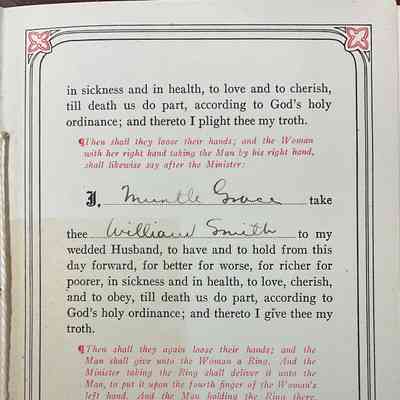 in sickness and in health, to love and to cherish,
till death us do part, according to God's holy
ordinance; and thereto I plight thee my troth.
¶Then shall they loose their hands; and the Woman
with her right hand taking the Man by his right hand,
shall likewise say after the Minister:
I, Grace take
thee William Smith to my
wedded Husband, to have and to hold from this
day forward, for better for worse, for richer for
poorer, in sickness and in health, to love, cherish,
and to obey, till death us do part, according to
God's holy ordinance; and thereto I give thee my
troth.
¶Then shall they again loose their hands; and the
Man shall give unto the Woman a Ring. And the
Minister taking the Ring shall deliver it unto the
Man, to put it upon the fourth finger of the Woman's
left hand. And the Man holding the Ring there,